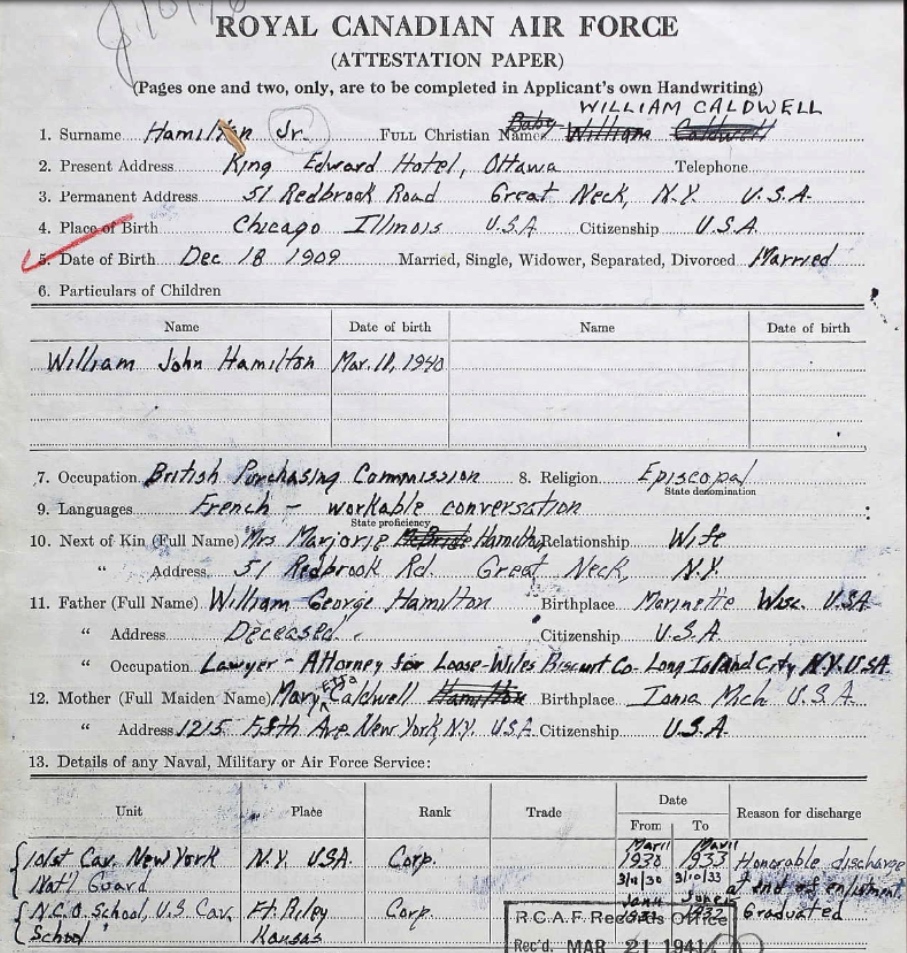 ROYAL CANADIAN AIR FORCE
(ATTESTATION PAPER)
(Pages one and two, only, are to be completed in Applicant's own Handwriting)
WILLIAM CALDWELL
1. Surname Hamilton Jr. FULL Christian Name Baby William Caldwell
2. Present Address King Edward Hotel, Ottawa Telephone
3. Permanent Address 51 Redbrook Road Great Neck, N.Y. U.S.A.
4. Place of Birth Chicago Illinois U.S.A Citizenship U.S.A.
5. Date of Birth Dec 18 1909 Married, Single, Widower, Separated, Divorced Married
6. Particulars of Children
Name Date of birth Name Date of birth
William John Hamilton Mar. 11, 1940
7. Occupation British Purchasing Commission 8. Religion Episcopal
State denomination
9. Languages French - workable conversation
State proficiency
10. Next of Kin (Full Name) Mrs Marjorie McBride Hamilton Relationship Wife
" Address 51 Redbrook Rd. Great Neck, N.Y.
11. Father (Full Name) William George Hamilton Birthplace Marinette Wisc. USA
" Address Deceased. Citizenship U.S.A.
" Occupation Lawyer - Attorney for Loose-Wiles Biscuit Co- Long Island City N.Y. USA
12. Mother (Full Maiden Name) Mary Etta Caldwell Hamilton Birthplace Ionia Mich U.S.A.
" Address 1215 Fifth Ave. New York, N.Y. USA Citizenship U.S.A.
13. Details of any Naval, Military or Air Force Service:
Unit Place Rank Trade Date Reason for discharge
From To
101st Cav. New York N.Y. USA. Corp. Mar 11 1930 Mar 11 1933 Honorable discharge
Nat'l Guard 3/11/30 3/10/33 at end of enlistment
N.C.O. School, U.S Cav. Ft. Riley Corp. 1932 Graduated
School Kansas
R.C.A.F. Records Office
Rec'd. MAR 21 1941